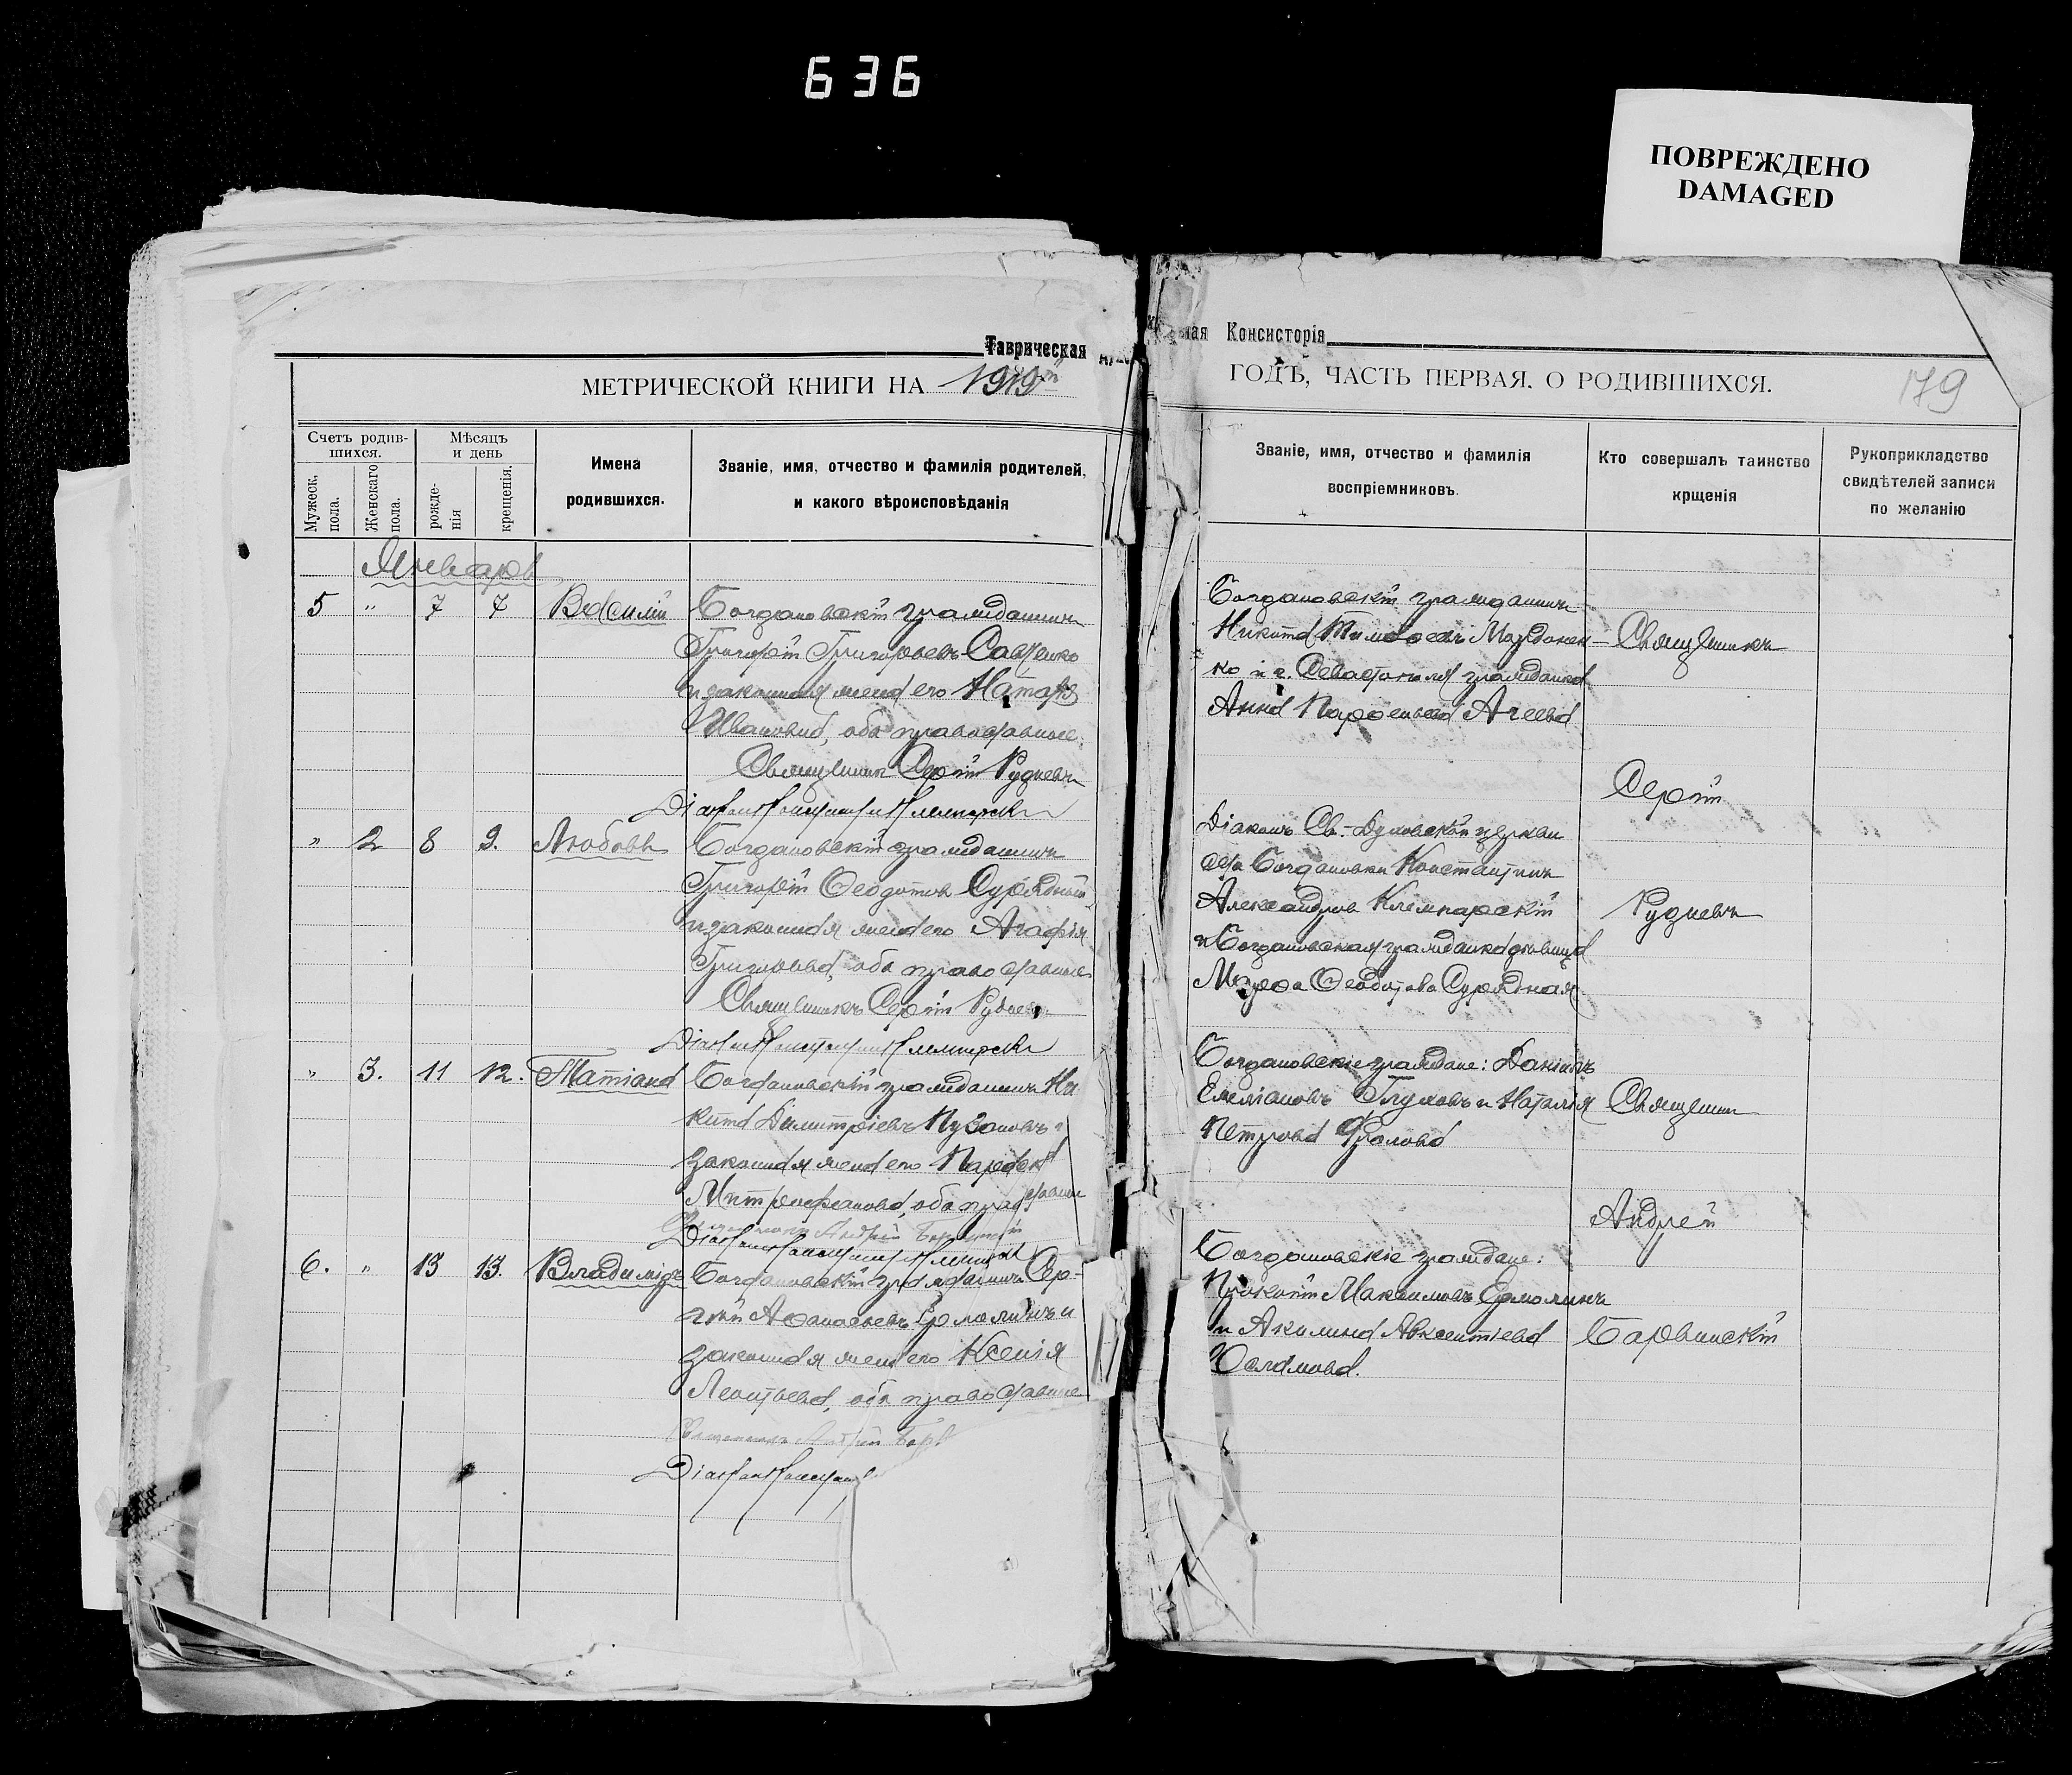 636
ПОВРЕЖДЕНО
DAMAGED
Таврическая
ная Консисторія
МЕТРИЧЕСКОЙ КНИГИ НА 1919й
ГОДЪ, ЧАСТЬ ПЕРВАЯ. О РОДИВШИХСЯ.
179
Счетъ родив-
шихся.
Мужеск. пола.
Женскаго пола.
Мѣсяцъ
и день
рожде-
нія
крещенія.
Имена
родившихся.
Званіе, имя, отчество и фамилія родителей,
и какого вѣроисповѣданія
Званіе, имя, отчество и фамилія
воспріемниковъ.
Кто совершалъ таинство
крщенія
Рукоприкладство
свидѣтелей записи
по желанію
Январь
5 " 7 7 Василій Богдановскій гражданинъ
Григорій Григорьевъ Савченко
и законная жена его
Ивановна, оба православные.
Священникъ Сергій Рудневъ
Діаконъ Константинъ Клепарскій
" 2 8 9. Любовь Богдановскій гражданинъ
Григорій Ѳеодотовъ Сурядный
и законная жена его Агафія
Григорьева, оба православные
Священникъ Сергій Рудневъ
Діаконъ Константинъ Клепарскій
" 3. 11 12. Татіана Богдановскій гражданинъ Ни
кита Димитріевъ Пузановъ и
законная жена его
Митрофанова, оба православные
Священникъ Андрей Барвинскій
Діаконъ Константинъ
6. " 13 13. Владиміръ Богдановскій гражданинъ Сер-
гій Аѳанасьевъ Ермолинъ и
законная жена его Ксенія
Леонтьева, оба православные
Священникъ Андрей Барв
Діаконъ Константинъ
Богдановскій гражданинъ
Никита Тимоѳеевъ
ко и г. Севастополя гражданка
Анна Парѳеньева Агеева
Діаконъ Св.-Духовской церкви
села Богдановки Константинъ
Александровъ Клепарскій
и Богдановская гражданка дѣвица
Марѳа Ѳеодотова Сурядная
Богдановскіе граждане: Даніилъ
Емеліановъ Глуховъ и Наталія
Петрова Фролова
Богдановскіе граждане:
Прокопій Максимовъ Ермолинъ
и Акилина Авксентіева
Священникъ
Сергій
Рудневъ
Священникъ
Андрей
Барвинскій